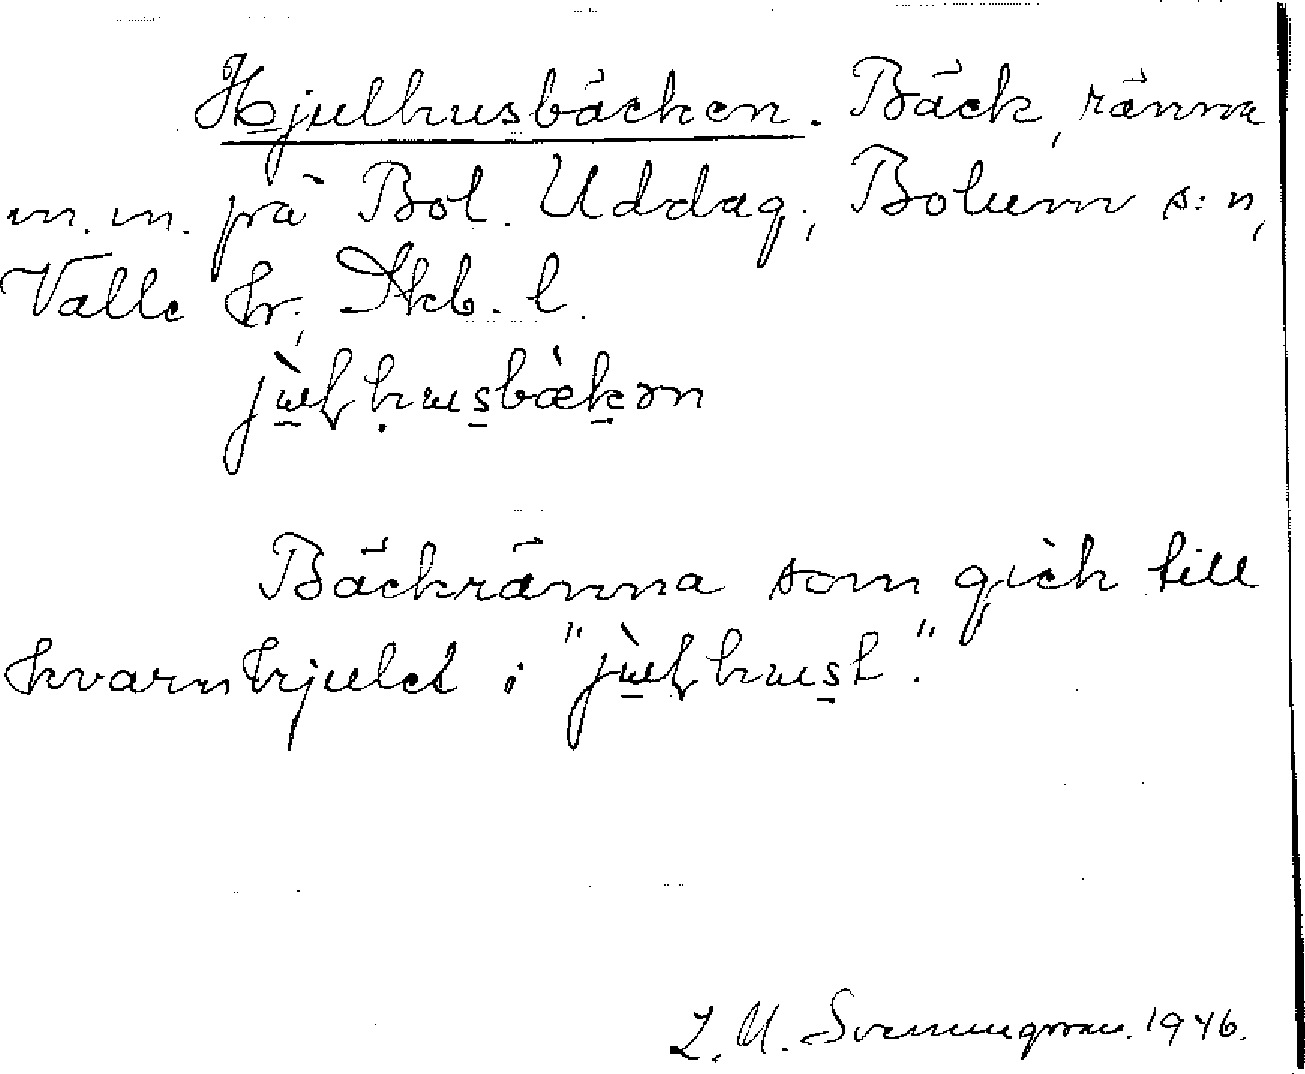 Hjulhusbäcken. Bäck, ränna
m.m. på Bol. Uddag., Bolum s:n,
Valle hr, Skb. l.
Bäckränna som gick till
kvarnhjulet i
Svenungsson. 1946.